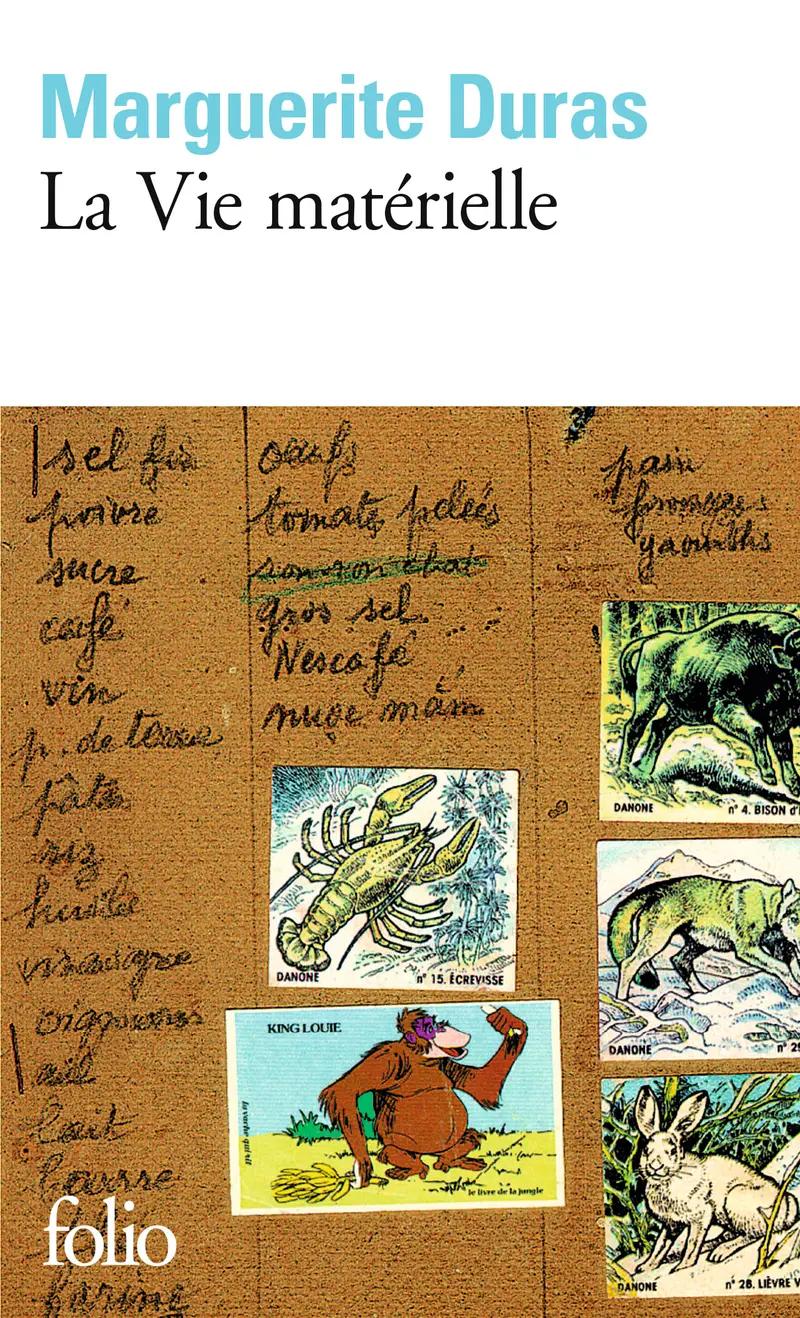 Marguerite Duras
La Vie matérielle
sel fin
poivre
sucre
café
vin
p. de terre
pâtes
riz
huile
vinaigre
oignons
ail
lait
beurre
farine
oeufs
tomates pelées
gros sel
Nescafé
nuoc mâm
pain
fromages
yaourths
DANONE
n° 4. BISON
DANONE
n° 15. ÉCREVISSE
DANONE
KING LOUIE
la vache qui rit
le livre de la jungle
DANONE
n° 28. LIÈVRE V
folio